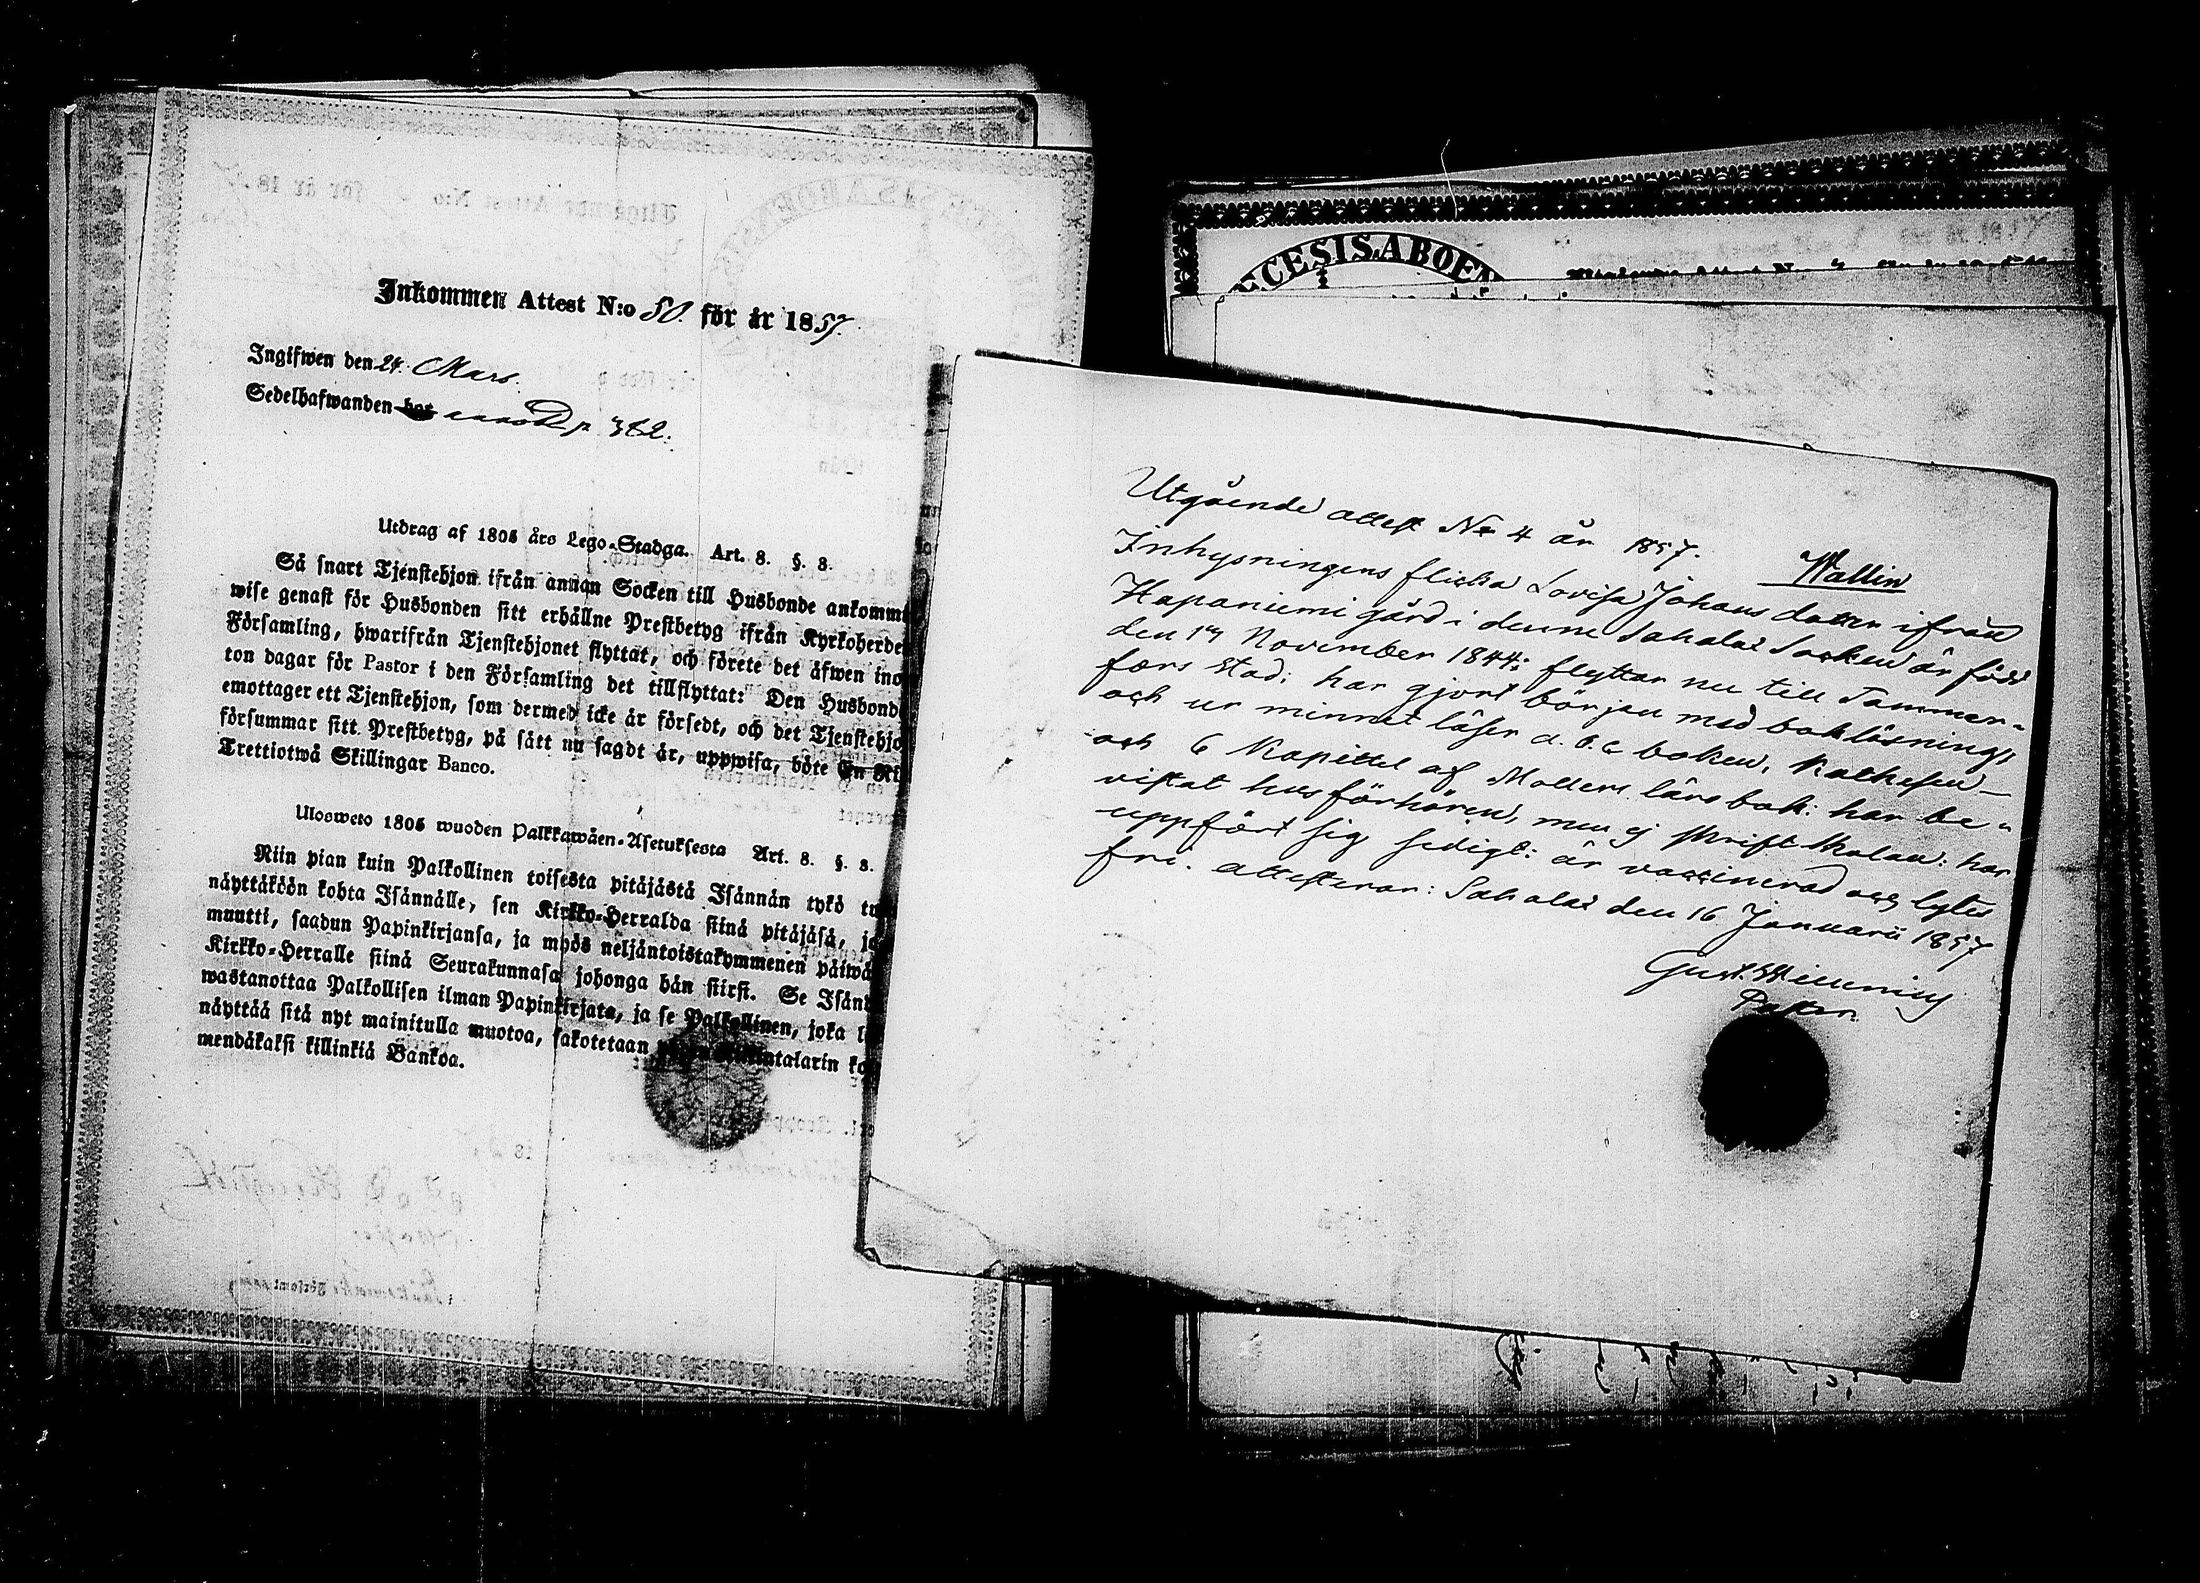 Inkommen Attest N:o 50. för år 1857.
Ingifwen den 24. Mars.
Sedelhafwanden p 382.
Utdrag af 1805 års Lego-Stadga. Art. 8. §. 8.
Så snart Tjenstehjon ifrån annan Socken till Husbonde ankomm
wise genast för Husbonden sitt erhållne Prestbetyg ifrån Kyrkoherde
Församling, hwarifrån Tjenstehjonet flyttat, och förete det äfwen ino
ton dagar för Pastor i den Församling det tillflyttat: Den Husbond
emottager ett Tjenstehjon, som dermed icke är försedt, och det Tjenstehjo
försummar sitt Prestbetyg, på sätt nu sagdt är, uppwisa, böte En Ri
Trettiotwå Skillingar Banco.
Ulosweto 1805 wuoden Palkkawäen-Asetuksesta Art. 8. §. 8.
Niin pian kuin Palkollinen toisesta pitäjästä Isännän tykö tu
näyttäköön kohta Isännälle, sen Kirkko-Herralda siinä pitäjäsä, jo
muutti, saadun Papinkirjansa, ja myös neljäntoistakymmenen päiwä
Kirkko-Herralle siinä Seurakunnasa johonga hän siirsi. Se Isän
wastanottaa Palkollisen ilman Papinkirjata, ja se Palkollinen, joka l
näyttää sitä nyt mainitulla muotoa, sakotetaan kintalarin ko
mendäkaksi killinkiä Bankoa.
ECESIS.ABOEN
Utgående attest No 4 år 1857.
Wallin
Inhysningens flicka Lovisa Johans dotter ifrån
Hapaniemi gård i denne Sahalax Socken är född
den 17 November 1844; flyttar nu till Tammer-
fors stad; har gjort början med bokläsning
och ur minnet läser a.b.c boken, Kathesen
och 6 Kapittel af Mollers lärobok: har be-
vistat husförhören, men ej skriftskolan: har
uppfört sig sedigt: är vaccinerad och lytes
fri. attesterar: Sahalax den 16 Januarii 1857
Pastor.